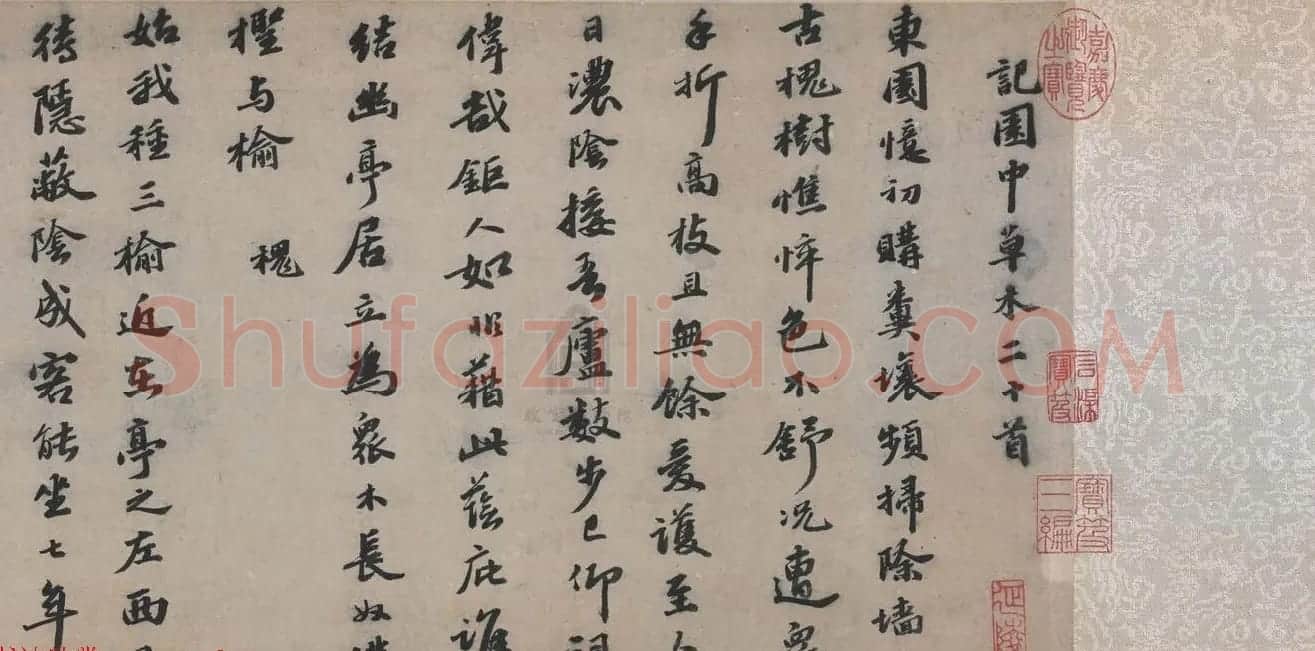 嘉慶御覽之寶
石渠寶笈
寶笈三編
記園中草木二十首
東園憶初購糞壤頻掃除墻
古槐樹憔悴色不舒況遭衆
手折高枝且無餘愛護至
日濃陰接吾廬數步已仰
偉哉鉅人如所藉此蔭庇誰
結幽亭居立為衆木長奴
檉與榆 槐
始我種三榆近在亭之左西
待隱蔽陰成客能坐七年
shufaziliao.com